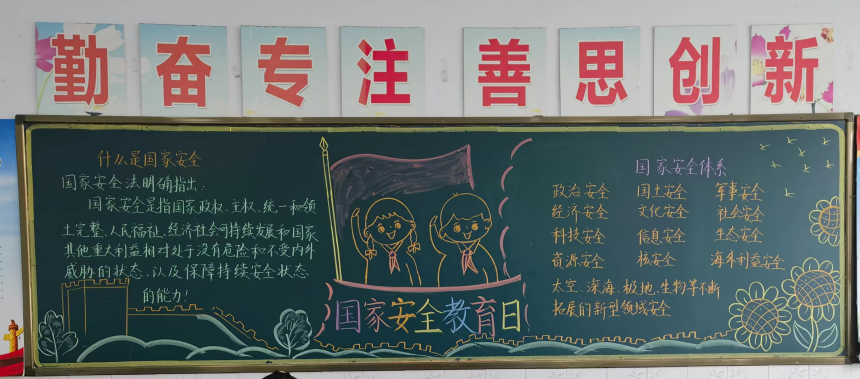 勤奋专注善思创新
什么是国家安全
国家安全法明确指出：
国家安全是指国家政权、主权、统一和领
土完整、人民福祉、经济社会可持续发展和国家
其他重大利益相对处于没有危险和不受内外
威胁的状态、以及保障持续安全状态
的能力！
国家安全教育日
国家安全体系
政治安全 国土安全 军事安全
经济安全 文化安全 社会安全
科技安全 信息安全 生态安全
资源安全 核安全 海外利益安全
太空、深海、极地、生物等不断
拓展的新型领域安全